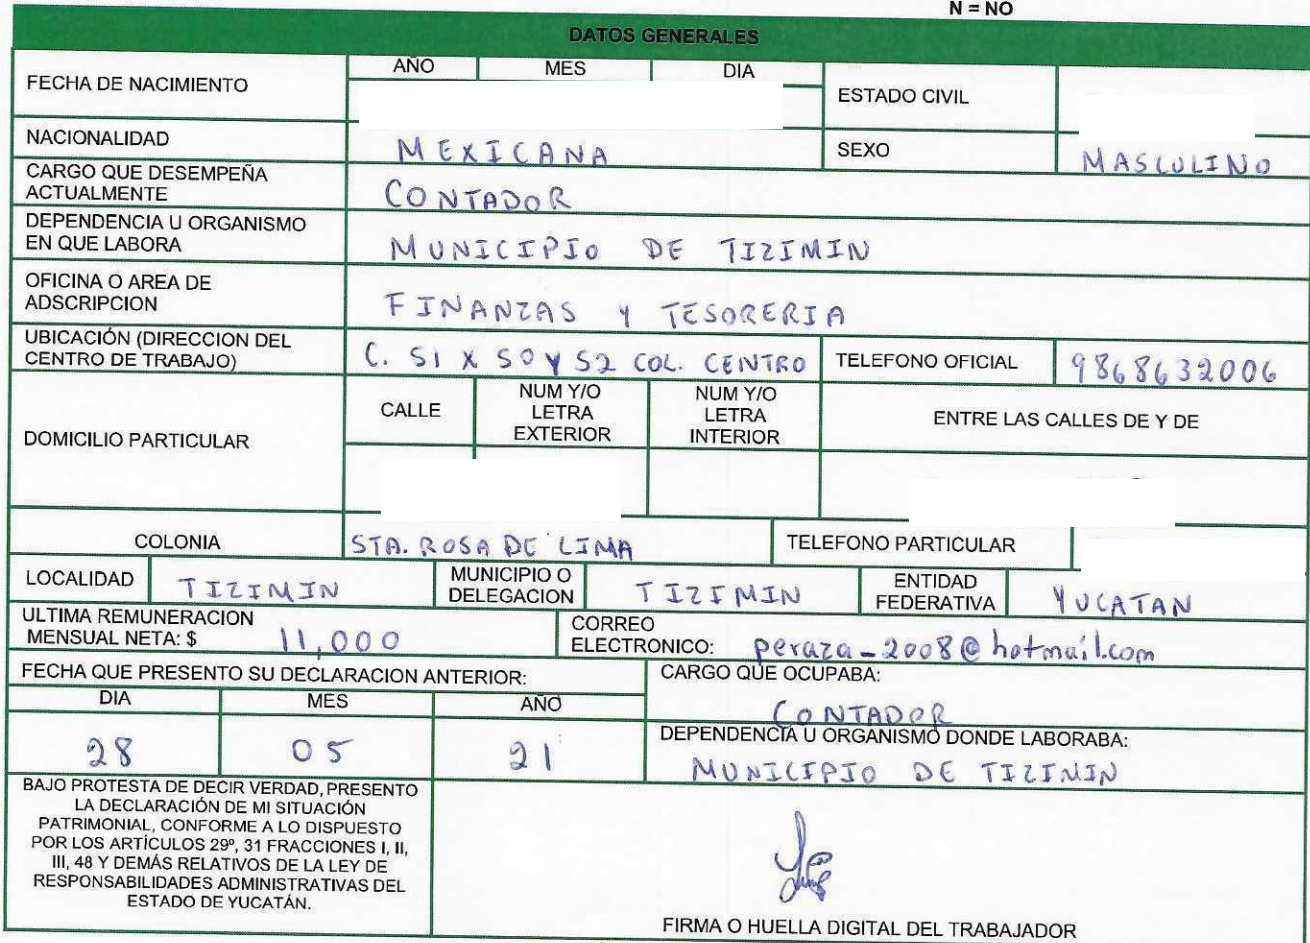 N = NO
DATOS GENERALES
FECHA DE NACIMIENTO
AÑO MES DIA
ESTADO CIVIL
NACIONALIDAD MEXICANA SEXO MASCULINO
CARGO QUE DESEMPEÑA
ACTUALMENTE
CONTADOR
DEPENDENCIA U ORGANISMO
EN QUE LABORA
MUNICIPIO DE TIZIMIN
OFICINA O AREA DE
ADSCRIPCION
FINANZAS Y TESORERIA
UBICACIÓN (DIRECCION DEL
CENTRO DE TRABAJO)
C. 51 X 50 Y 52 COL. CENTRO
TELEFONO OFICIAL 9868632006
DOMICILIO PARTICULAR
CALLE
NUM Y/O
LETRA
EXTERIOR
NUM Y/O
LETRA
INTERIOR
ENTRE LAS CALLES DE Y DE
COLONIA STA. ROSA DE LIMA TELEFONO PARTICULAR
LOCALIDAD TIZIMIN
MUNICIPIO O
DELEGACION
TIZIMIN
ENTIDAD
FEDERATIVA
YUCATAN
ULTIMA REMUNERACION
MENSUAL NETA: $ 11,000
CORREO
ELECTRONICO: peraza_2008@hotmail.com
FECHA QUE PRESENTO SU DECLARACION ANTERIOR:
DIA MES AÑO
28 05 21
CARGO QUE OCUPABA:
CONTADOR
DEPENDENCIA U ORGANISMO DONDE LABORABA:
MUNICIPIO DE TIZIMIN
BAJO PROTESTA DE DECIR VERDAD, PRESENTO
LA DECLARACIÓN DE MI SITUACIÓN
PATRIMONIAL, CONFORME A LO DISPUESTO
POR LOS ARTÍCULOS 29º, 31 FRACCIONES I, II,
III, 48 Y DEMÁS RELATIVOS DE LA LEY DE
RESPONSABILIDADES ADMINISTRATIVAS DEL
ESTADO DE YUCATÁN.
FIRMA O HUELLA DIGITAL DEL TRABAJADOR